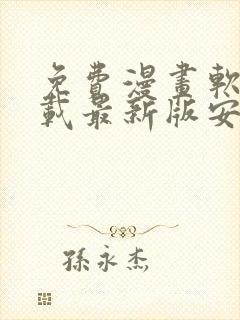 免費漫畫軟
載最新版安
孫永杰